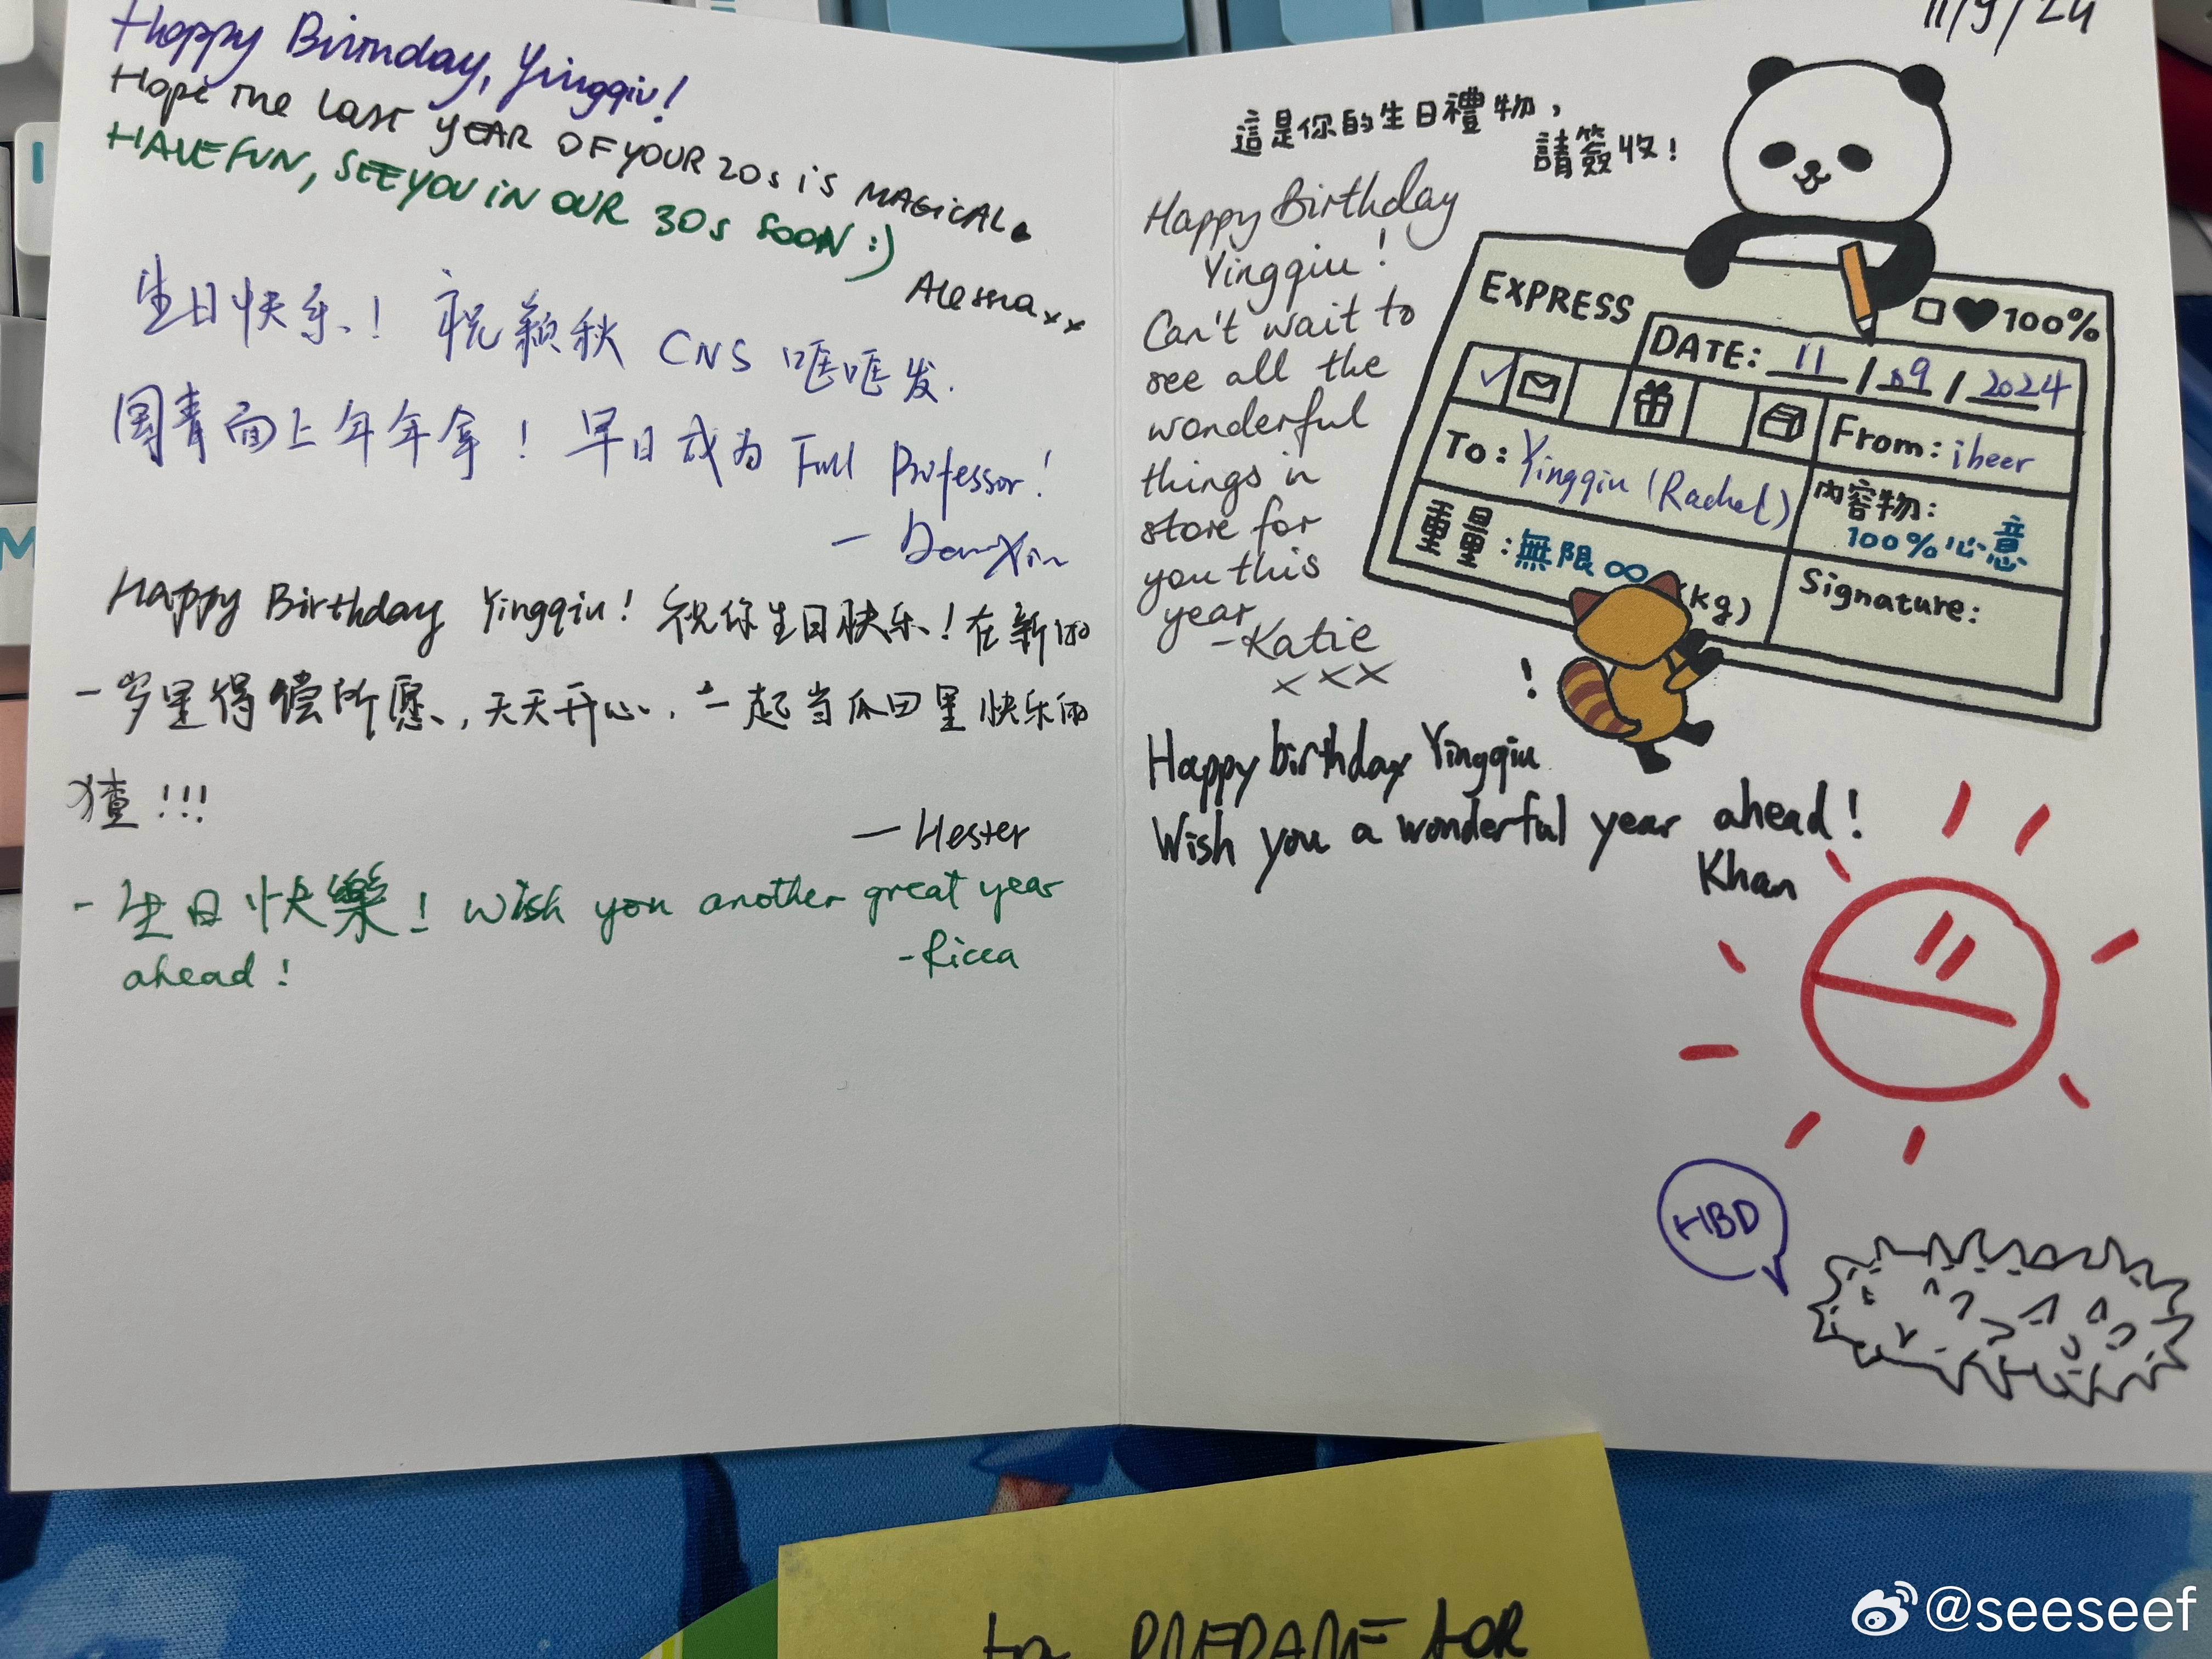 Happy Birthday, Yingqiu!
Hope the last YEAR OF YOUR 20s is MAGICAL.
HAVE FUN, SEE YOU IN OUR 30s SOON :)
Alessia xx
生日快乐！祝颖秋 CNS 哐哐发.
国青面上年年拿！早日成为 Full Professor!
— DanXin
Happy Birthday Yingqiu! 祝你生日快乐！在新的
一岁里得偿所愿, 天天开心, 一起当瓜田里快乐的
猹!!!
— Hester
- 生日快樂! Wish you another great year
ahead!
- Ricca
11/9/24
這是你的生日禮物，
請簽收！
Happy Birthday
Yingqiu!
Can't wait to
see all the
wonderful
things in
store for
you this
year
-Katie
xxx
EXPRESS
100%
DATE: 11 / 09 / 2024
From: ibeer
To: Yingqiu (Rachel)
內容物:
100%心意
重量: 無限∞ (kg)
Signature:
!
Happy birthday Yingqiu
Wish you a wonderful year ahead!
Khan
HBD
to PREPARE FOR
@seeseef